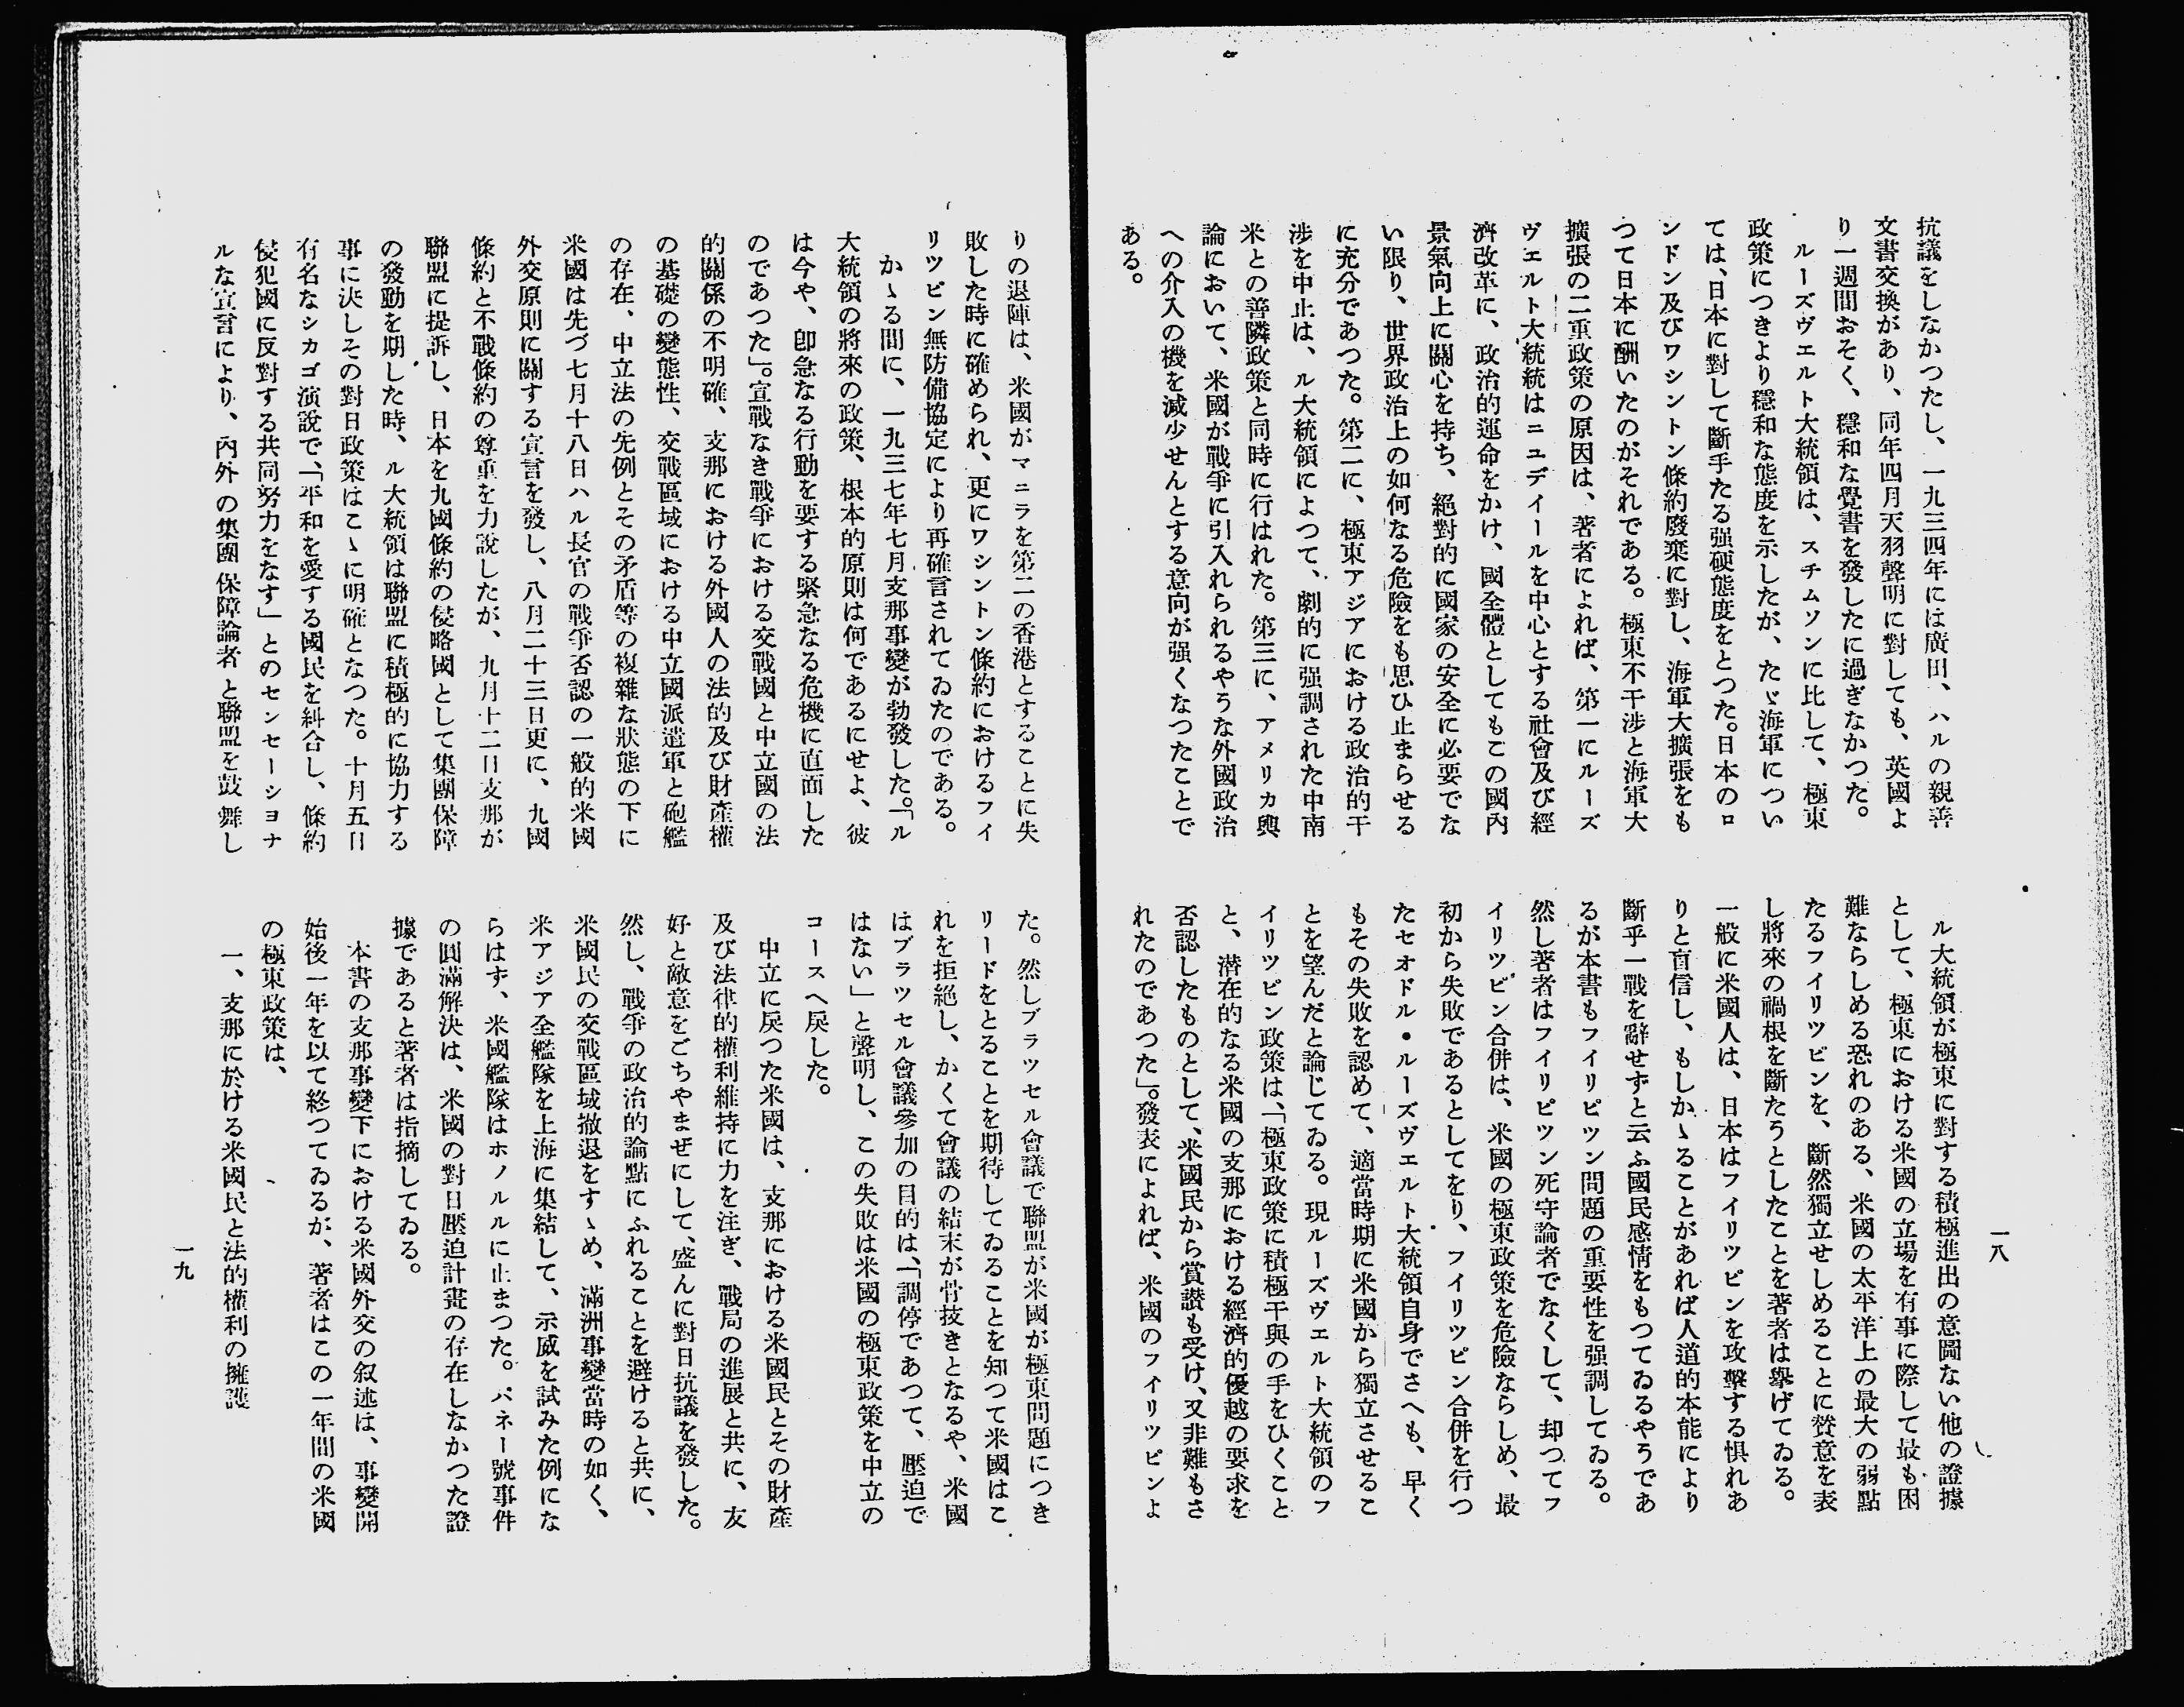 一八
抗議をしなかつたし、一九三四年には廣田、ハルの親善
文書交換があり、同年四月天羽聲明に對しても、英國よ
り一週間おそく、穩和な覺書を發したに過ぎなかつた。
ルーズヴエルト大統領は、スチムソンに比して、極東
政策につきより穩和な態度を示したが、たゞ海軍につい
ては、日本に對して斷乎たる强硬態度をとつた。日本のロ
ンドン及びワシントン條約廢棄に對し、海軍大擴張をも
つて日本に酬いたのがそれである。極東不干涉と海軍大
擴張の二重政策の原因は、著者によれば、第一にルーズ
ヴエルト大統統はニユデイールを中心とする社會及び經
濟改革に、政治的運命をかけ、國全體としてもこの國內
景氣向上に關心を持ち、絕對的に國家の安全に必要でな
い限り、世界政治上の如何なる危險をも思ひ止まらせる
に充分であつた。第二に、極東アジアにおける政治的干
涉を中止は、ル大統領によつて、劇的に强調された中南
米との善隣政策と同時に行はれた。第三に、アメリカ輿
論において、米國が戰爭に引入れられるやうな外國政治
への介入の機を減少せんとする意向が强くなつたことで
ある。
ル大統領が極東に對する積極進出の意圖ない他の證據
として、極東における米國の立場を有事に際して最も困
難ならしめる恐れのある、米國の太平洋上の最大の弱點
たるフイリツピンを、斷然獨立せしめることに贊意を表
し將來の禍根を斷たうとしたことを著者は擧げてゐる。
一般に米國人は、日本はフイリツピンを攻擊する惧れあ
りと盲信し、もしかゝることがあれば人道的本能により
斷乎一戰を辭せずと云ふ國民感情をもつてゐるやうであ
るが本書もフイリピツン問題の重要性を强調してゐる。
然し著者はフイリピツン死守論者でなくして、却つてフ
イリツピン合併は、米國の極東政策を危險ならしめ、最
初から失敗であるとしてをり、フイリツピン合併を行つ
たセオドル・ルーズヴエルト大統領自身でさへも、早く
もその失敗を認めて、適當時期に米國から獨立させるこ
とを望んだと論じてゐる。現ルーズヴエルト大統領のフ
イリツピン政策は、「極東政策に積極干與の手をひくこと
と、潜在的なる米國の支那における經濟的優越の要求を
否認したものとして、米國民から賞讃も受け、又非難もさ
れたのであつた」。發表によれば、米國のフイリツピンよ
りの退陣は、米國がマニラを第二の香港とすることに失
敗した時に確められ、更にワシントン條約におけるフイ
リツピン無防備協定により再確言されてゐたのである。
かゝる間に、一九三七年七月支那事變が勃發した。「ル
大統領の將來の政策、根本的原則は何であるにせよ、彼
は今や、卽急なる行動を要する緊急なる危機に直面した
のであつた」。宣戰なき戰爭における交戰國と中立國の法
的關係の不明確、支那における外國人の法的及び財產權
の基礎の變態性、交戰區域における中立國派遣軍と砲艦
の存在、中立法の先例とその矛盾等の複雜な狀態の下に
米國は先づ七月十八日ハル長官の戰爭否認の一般的米國
外交原則に關する宣言を發し、八月二十三日更に、九國
條約と不戰條約の尊重を力說したが、九月十二日支那が
聯盟に提訴し、日本を九國條約の侵略國として集團保障
の發動を期した時、ル大統領は聯盟に積極的に協力する
事に決しその對日政策はこゝに明確となつた。十月五日
有名なシカゴ演說で、「平和を愛する國民を糾合し、條約
侵犯國に反對する共同努力をなす」とのセンセーシヨナ
ルな宣言により、內外の集團保障論者と聯盟を鼓舞し
た。然しブラツセル會議で聯盟が米國が極東問題につき
リードをとることを期待してゐることを知つて米國はこ
れを拒絕し、かくて會議の結末が骨技きとなるや、米國
はブラツセル會議參加の目的は、「調停であつて、壓迫で
はない」と聲明し、この失敗は米國の極東政策を中立の
コースへ戾した。
中立に戾つた米國は、支那における米國民とその財產
及び法律的權利維持に力を注ぎ、戰局の進展と共に、友
好と敵意をごちやまぜにして、盛んに對日抗議を發した。
然し、戰爭の政治的論點にふれることを避けると共に、
米國民の交戰區域撤退をすゝめ、滿洲事變當時の如く、
米アジア全艦隊を上海に集結して、示威を試みた例にな
らはず、米國艦隊はホノルルに止まつた。パネー號事件
の圓滿解決は、米國の對日壓迫計畫の存在しなかつた證
據であると著者は指摘してゐる。
本書の支那事變下における米國外交の叙述は、事變開
始後一年を以て終つてゐるが、著者はこの一年間の米國
の極東政策は、
一、支那に於ける米國民と法的權利の擁護
一九